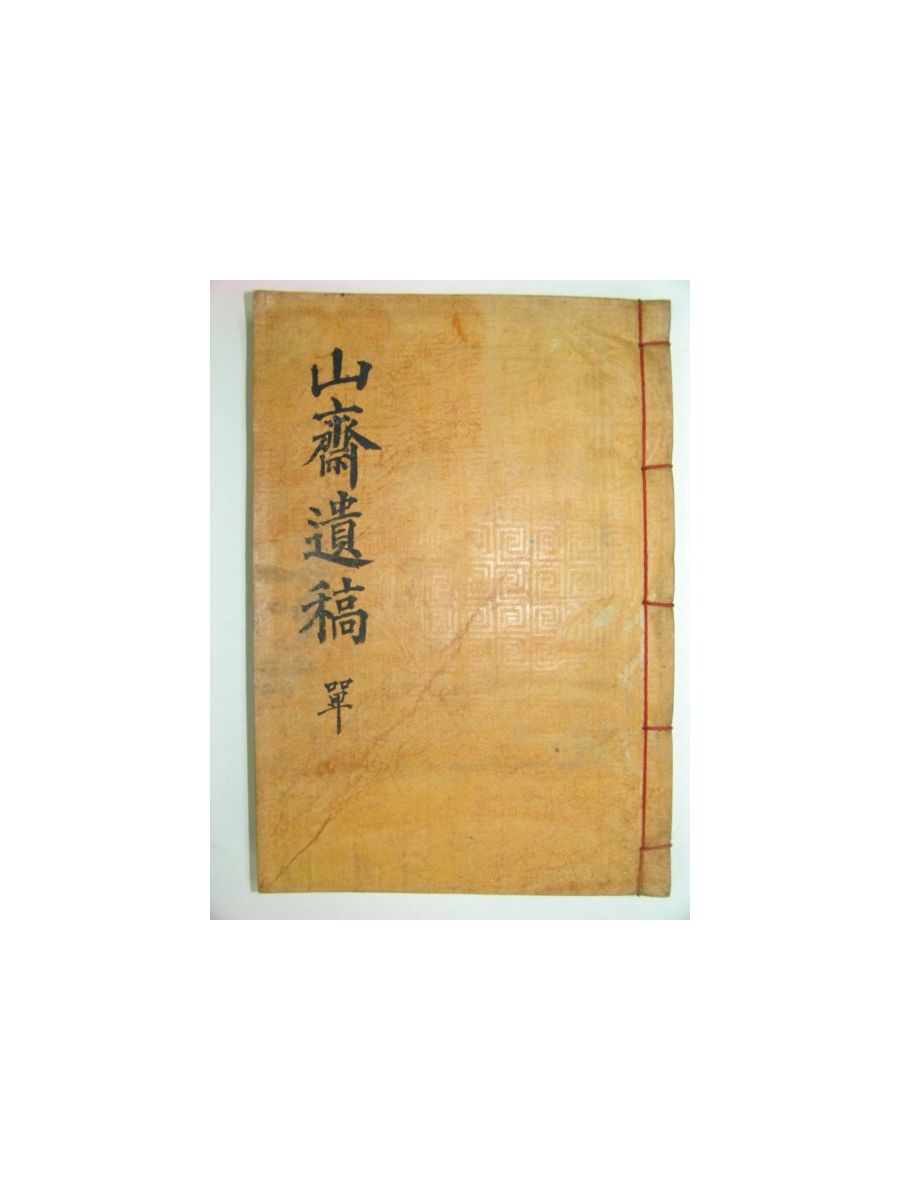 山齋遺稿 單